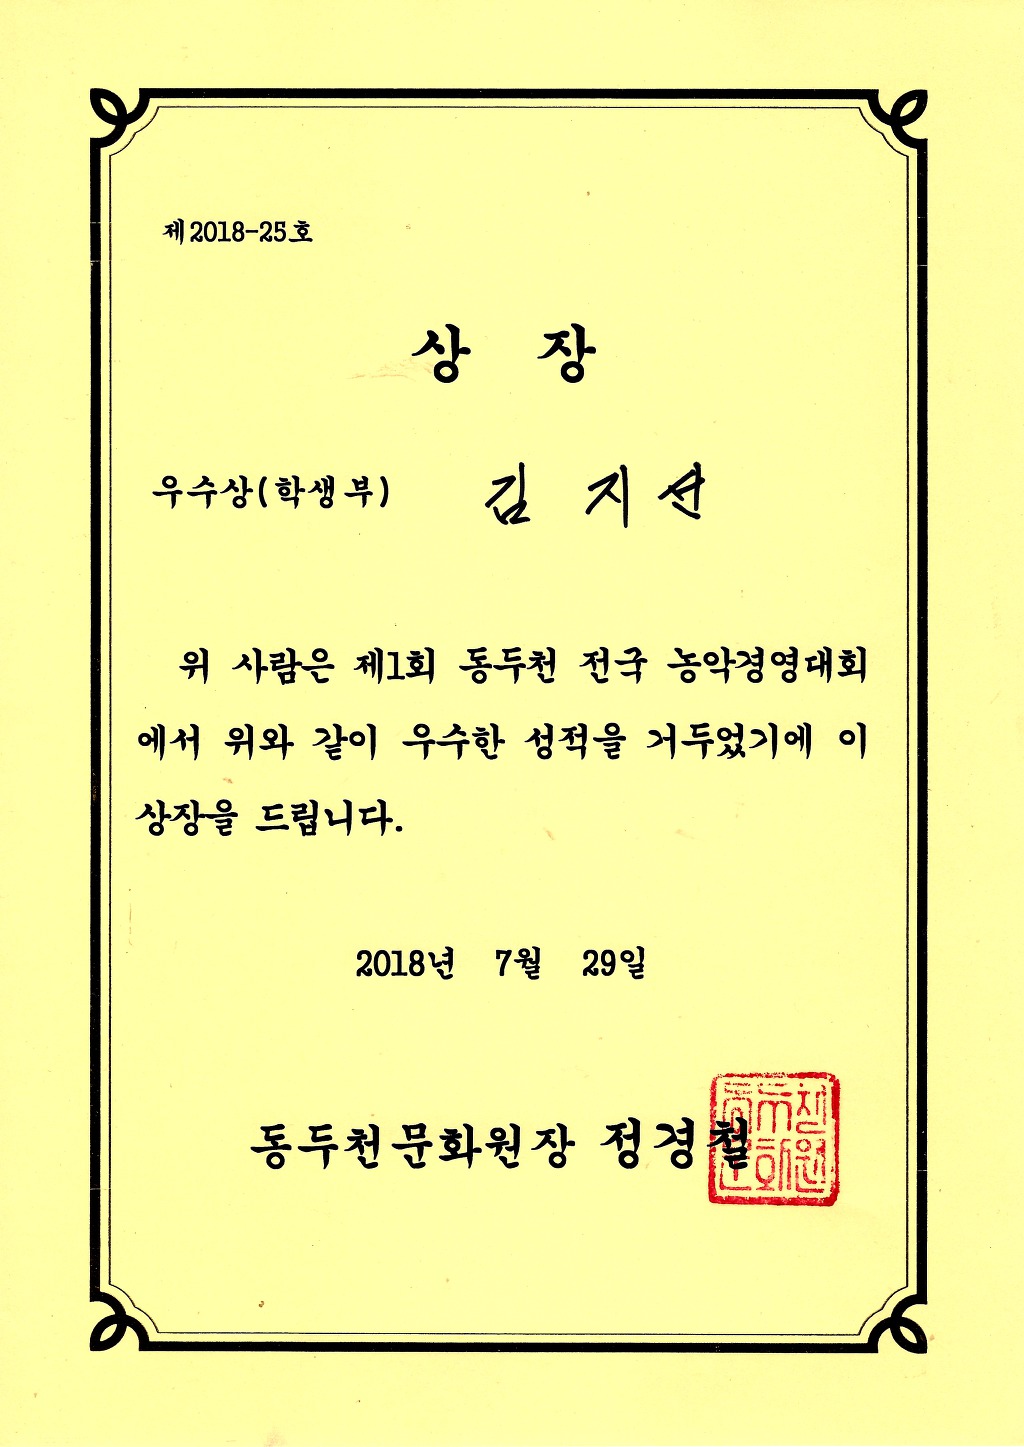 제2018-25호
상 장
우수상(학생부) 김 지 선
위 사람은 제1회 동두천 전국 농악경영대회
에서 위와 같이 우수한 성적을 거두었기에 이
상장을 드립니다.
2018년 7월 29일
동두천문화원장 정경철
동두천
문화원